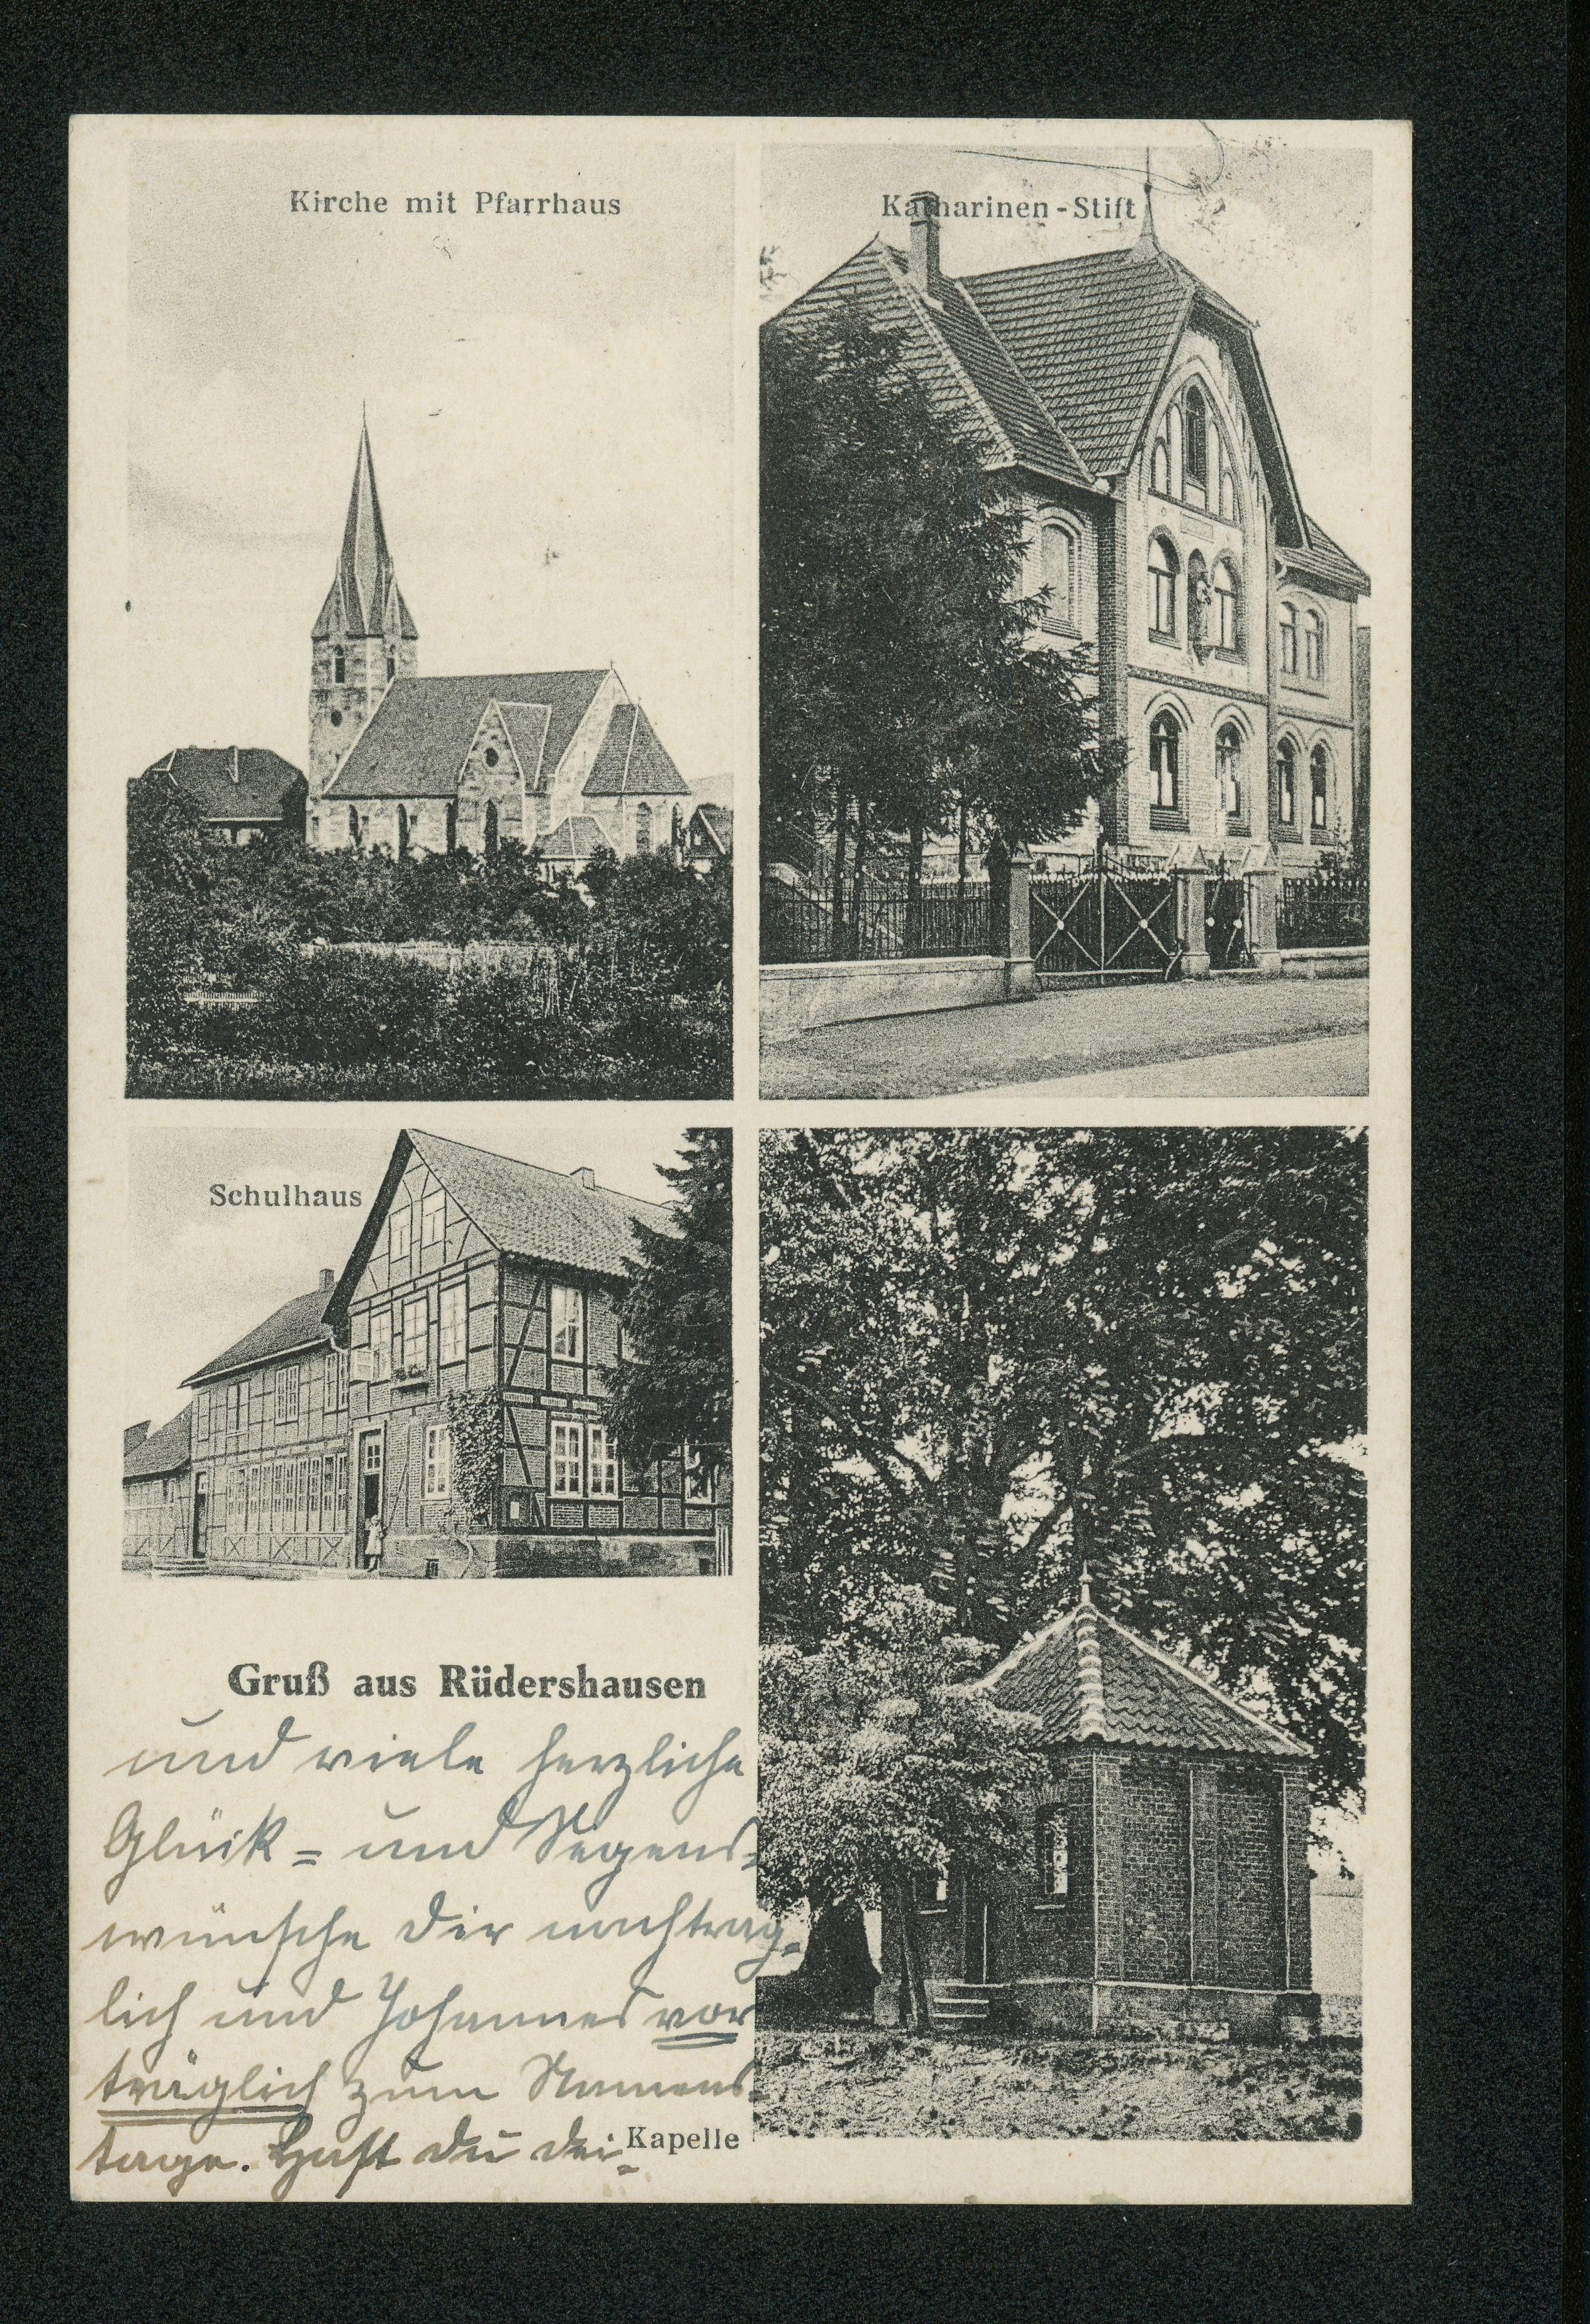 Kirche mit Pfarrhaus
Katharinen-Stift
Schulhaus
Gruß aus Rüdershausen
und viele herzliche
Glück= und Segens=
wünsche Dir nachträg=
lich und Johannes vor
träglich zum Namens=
tage. Hast du dei=
Kapelle